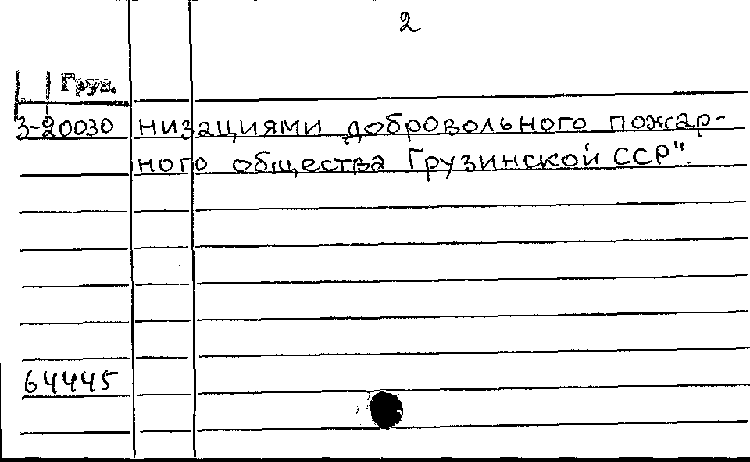 2
Груз.
3-20030 низациями добровольного пожар-
ного общества Грузинской ССР".
64445